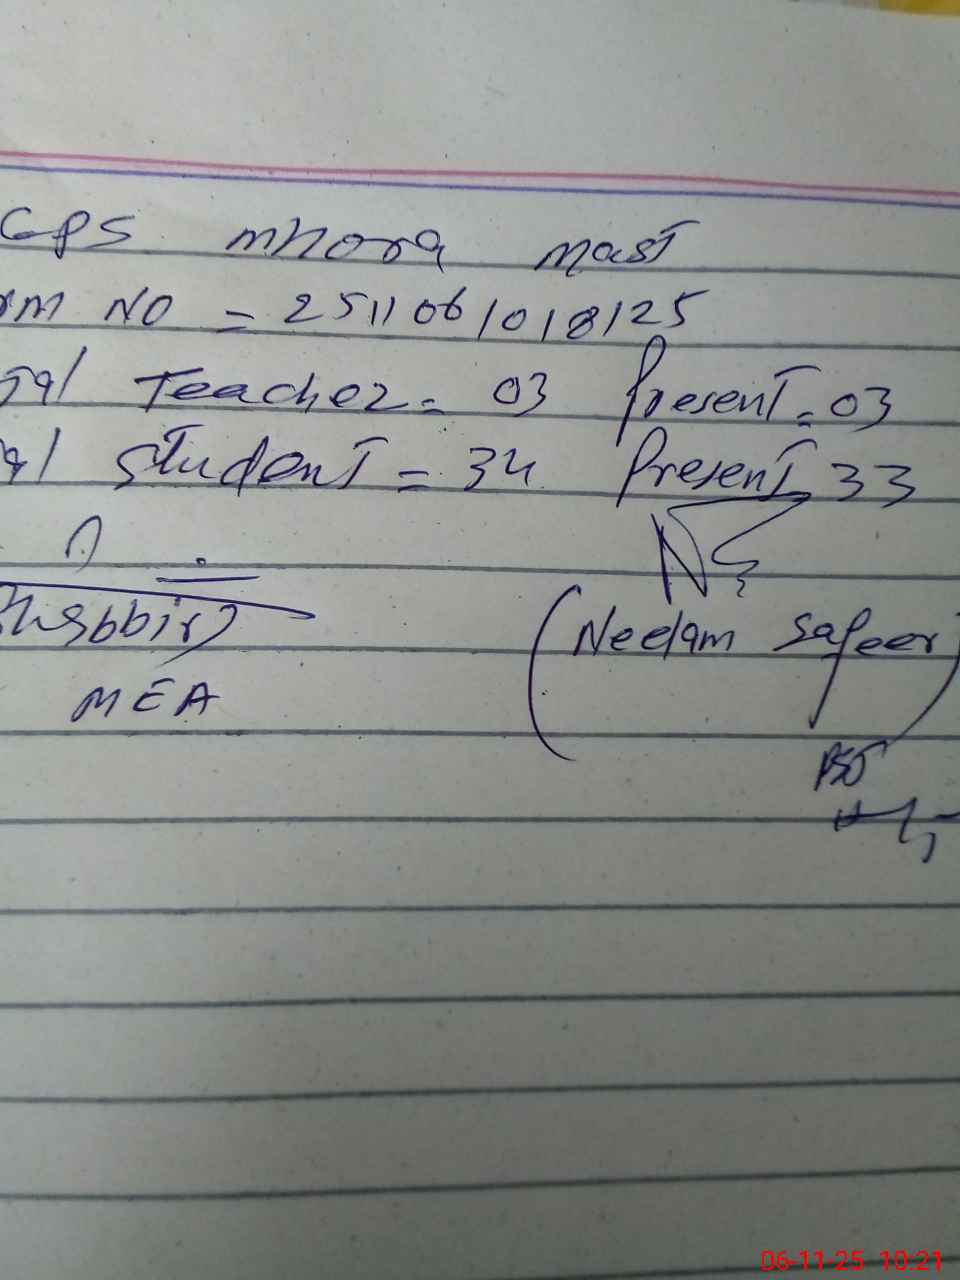 GPS mhora mast
rm NO = 2511061018125
Tal Teacher = 03 Present = 03
al Student = 34 Present 33
Shabbir)
(Neelam Safeer)
MEA
PST
06-11-25 10:21